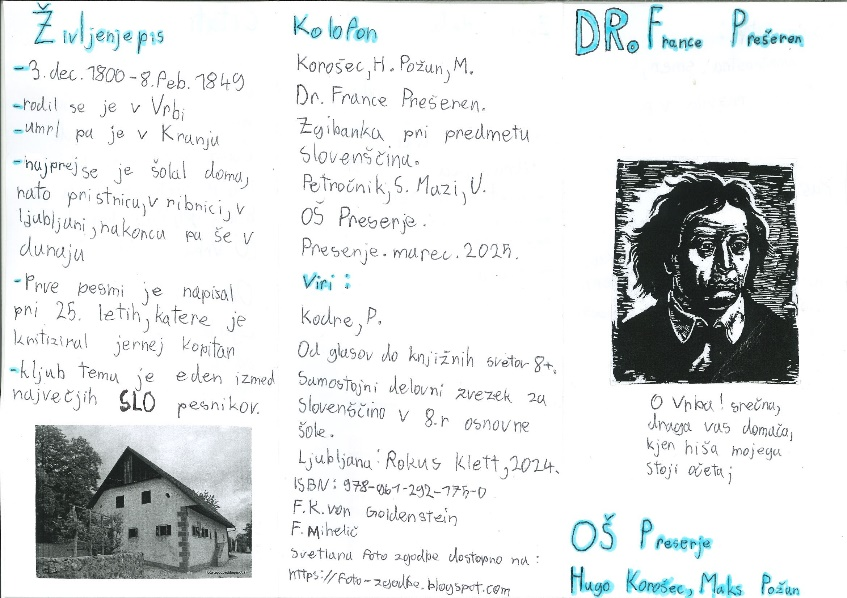 Življenjepis
-3. dec. 1800 - 8. feb. 1849
-rodil se je v Vrbi
-umrl pa je v Kranju
-najprej se je šolal doma,
nato pri stricu, v ribnici, v
ljubljani, nakoncu pa še v
dunaju
-Prve pesmi je napisal
pri 25. letih, katere je
kritiziral jernej kopitar
-kljub temu je eden izmed
največjih SLO pesnikov.
Kolofon
Korošec, H. Požun, M.
Dr. France Prešeren.
Zgibanka pri predmetu
slovenščina.
Petročnik, S. Mazi, U.
OŠ Preserje.
Preserje. marec. 2025.
Viri:
Kodre, P.
Od glasov do knjižnih svetov 8+.
Samostojni delovni zvezek za
slovenščino v 8.r osnovne
šole.
Ljubljana: Rokus Klett, 2024.
ISBN: 978-961-292-175-0
F.K. von Goldenstein
F. Mihelič
Svetlana foto zgodbe dostopno na:
https://foto-zgodbe.blogspot.com
DR. France Prešeren
O Vrba! srečna,
draga vas domača,
kjer hiša mojega
stoji očeta;
OŠ Preserje
Hugo Korošec, Maks Požun